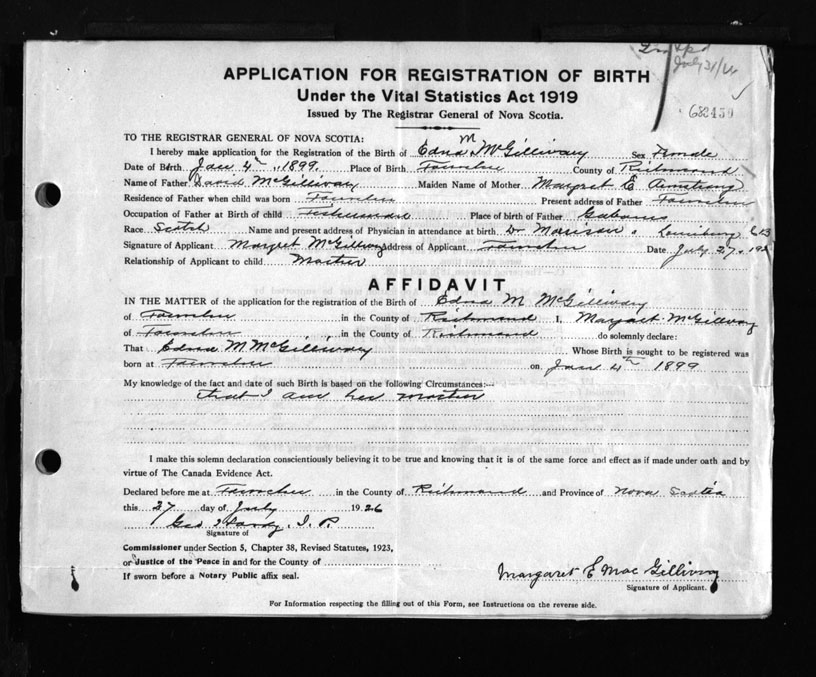 July 31/26
632459
APPLICATION FOR REGISTRATION OF BIRTH
Under the Vital Statistics Act 1919
Issued by The Registrar General of Nova Scotia.
TO THE REGISTRAR GENERAL OF NOVA SCOTIA:
I hereby make application for the Registration of the Birth of Edna M McGillivary Sex Female
Date of Birth Jan 4th, 1899. Place of Birth Fourchu County of Richmond
Name of Father David McGillivary Maiden Name of Mother Margret E Armstrong
Residence of Father when child was born Fourchu Present address of Father Fourchu
Occupation of Father at Birth of child Fisherman Place of birth of Father Gabarus
Race Scotch Name and present address of Physician in attendance at birth Dr Morrison Louisburg C.B
Signature of Applicant Margret McGillivry Address of Applicant Fourchu Date July 27. 192
Relationship of Applicant to child Mother
AFFIDAVIT
IN THE MATTER of the application for the registration of the Birth of Edna M McGillivary
of Fourchu in the County of Richmond I, Margaret McGillivry
of Fourchu in the County of Richmond do solemnly declare:
That Edna M McGillivary Whose Birth is sought to be registered was
born at Fourchu on Jan 4th 1899
My knowledge of the fact and date of such Birth is based on the following Circumstances:—
that I am her mother
I make this solemn declaration conscientiously believing it to be true and knowing that it is of the same force and effect as if made under oath and by
virtue of The Canada Evidence Act.
Declared before me at Fourchu in the County of Richmond and Province of Nova Scotia
this 27 day of July 1926
Geo Hardy, J. P.
Signature of
Commissioner under Section 5, Chapter 38, Revised Statutes, 1923,
or Justice of the Peace in and for the County of
If sworn before a Notary Public affix seal.
Margaret E Mac Gillivry
Signature of Applicant.
For Information respecting the filling out of this Form, see Instructions on the reverse side.